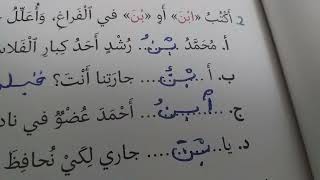 2 أَكْتُبُ «ابْنَ» أَوِ «بْنَ» في الْفَراغِ، وَأُعَلِّلُ
أ. مُحَمَّدُ بْنُ رُشْدٍ أَحَدُ كِبارِ الْفَلاسِ
ب. أَ بْنُ جارَتِنا أَنْتَ؟
ج. ابْنُ أَحْمَدَ عُضْوٌ في ناد
د. يا بْنَ جاري لِكَيْ نُحافِظَ